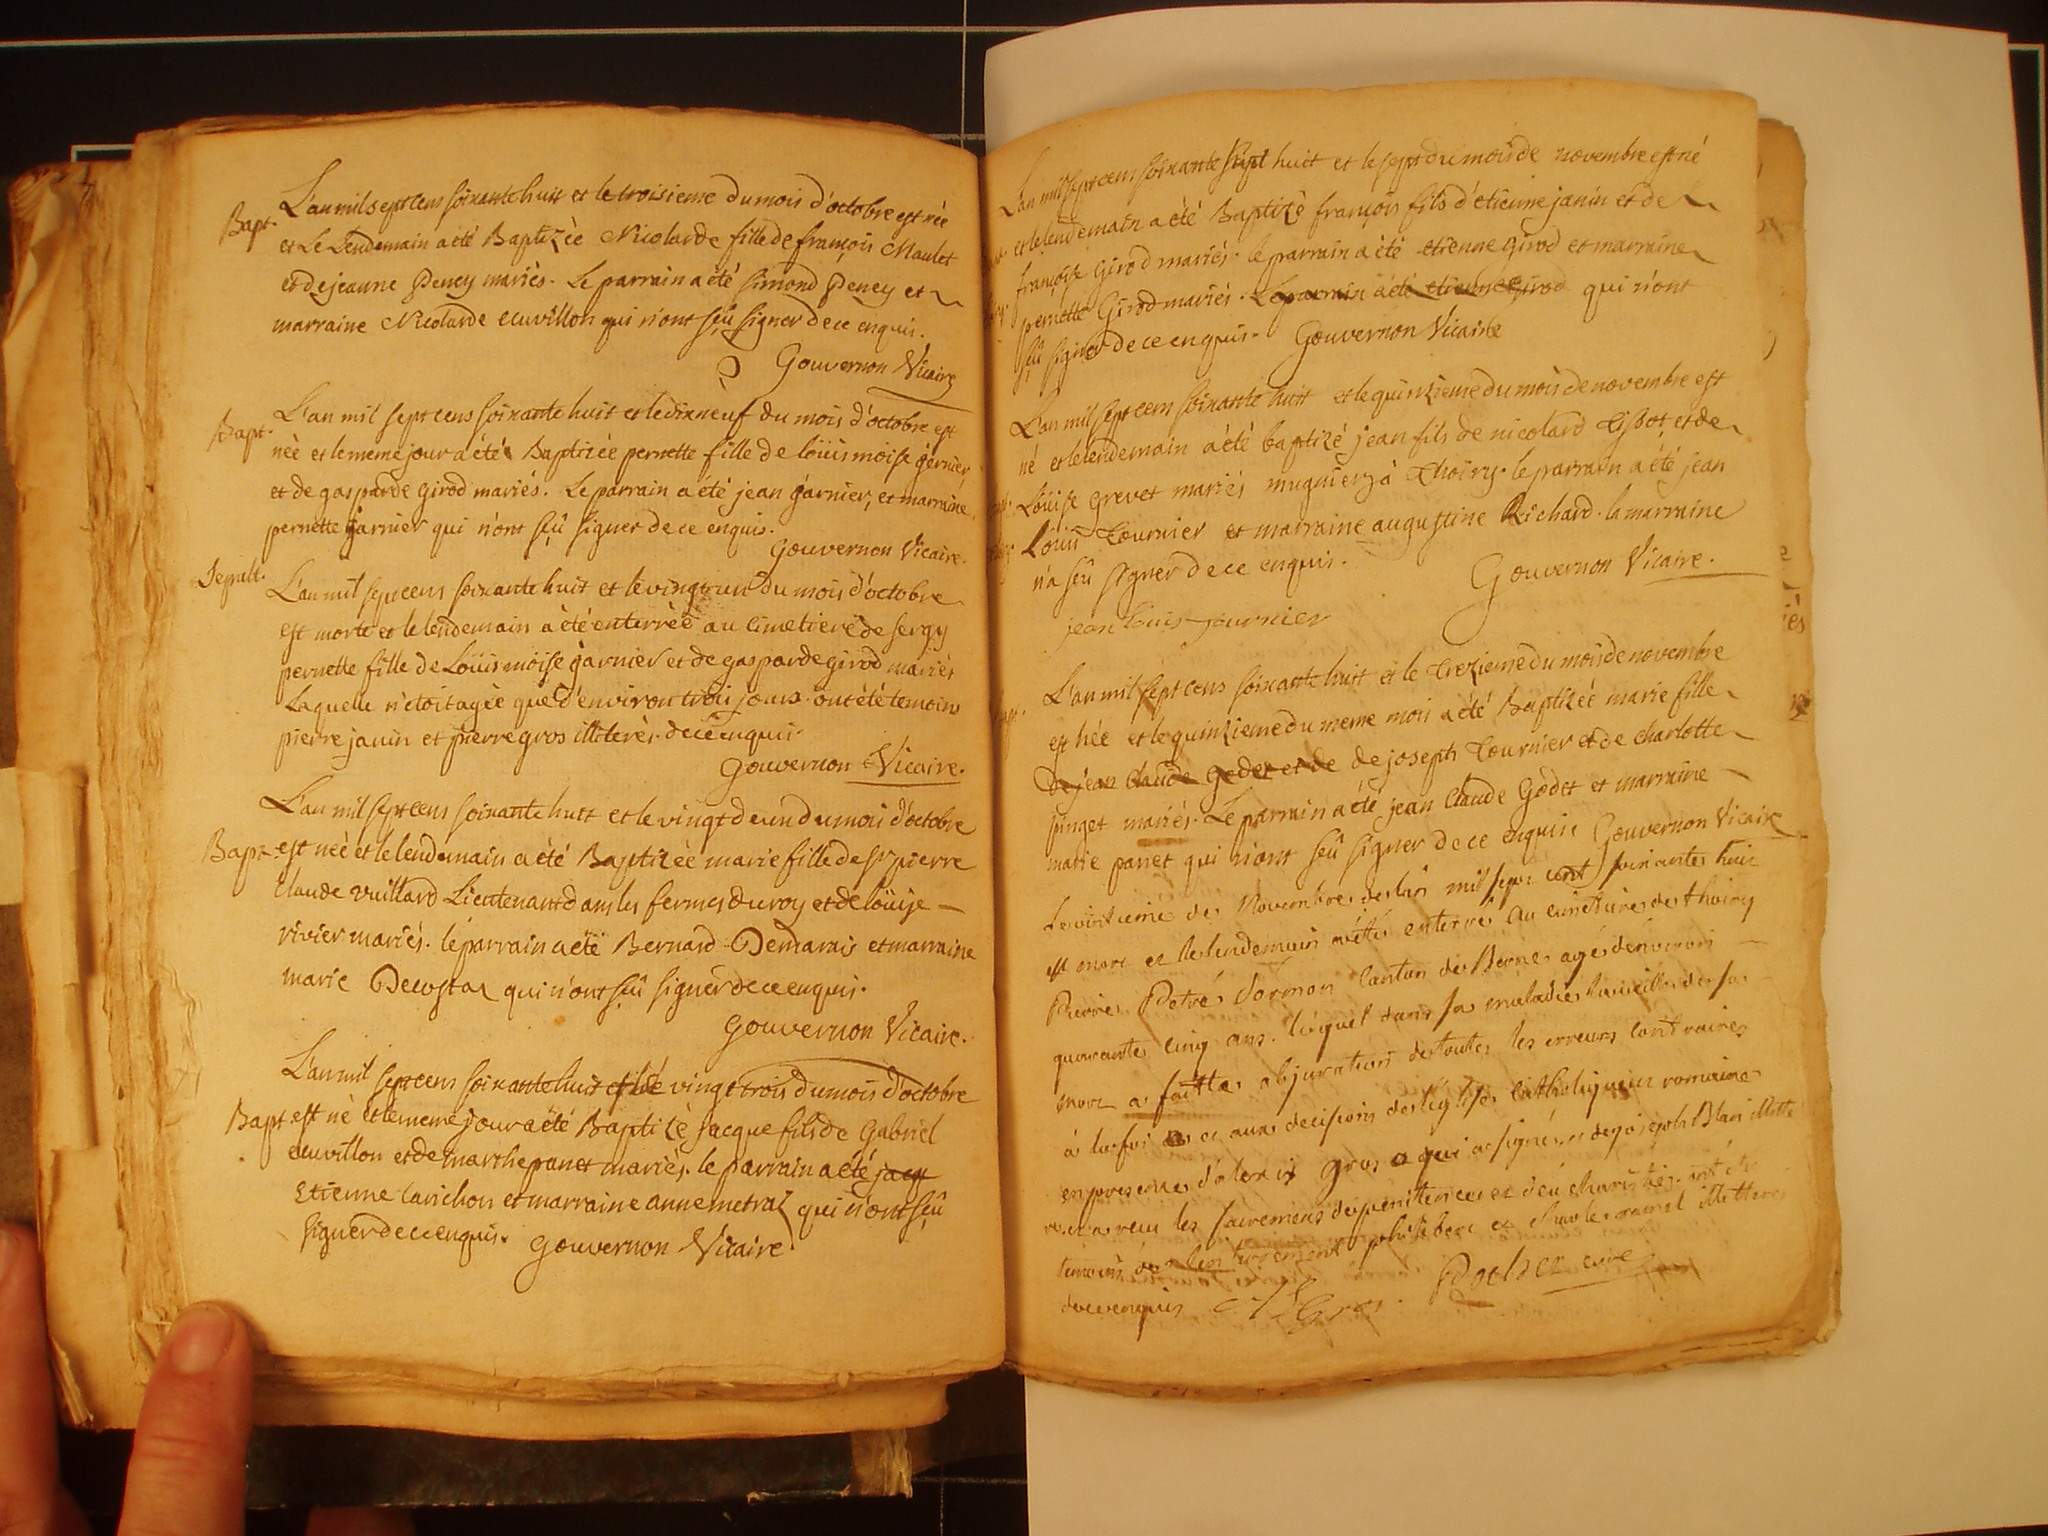 Bapt. L'an mil sept cens soixante huit et le troisieme du mois d'octobre est née
et Le Lendemain a été Baptizèe Nicolarde fille de françois Maulet
et de jeanne Peney mariés. Le parrain a été simond Peney et
marraine Nicolarde ecuvillon qui n'ont sçû signer de ce enquis.
Gouvernon Vicaire
Bapt. L'an mil sept cens soixante huit et le dixneuf du mois d'octobre est
née et le meme jour a été Baptizée pernette fille de loüis moise garnier
et de gasparde girod mariés. Le parrain a été jean garnier, et marraine
pernette garnier qui n'ont sçû signer de ce enquis.
Gouvernon Vicaire.
Sepult. L'an mil sept cens soixante huit et le vingt un du mois d'octobre
est morte et le lendemain a été enterrée au cimetiere de sergy
pernette fille de Loüis möise garnier et de gasparde girod mariés
Laquelle n'étoit agèe que d'environ trois jours. ont été temoins
pierre janin et pierre gros illiterés. de ce enquis.
Gouvernon Vicaire.
L'an mil sept cens soixante huit et le vingt deux du mois d'octobre
Bapt. est née et le lendemain a été Baptizèe marie fille de sr. pierre
Claude vuillard Lieutenant dans les fermes du roy et de loüise
rivier mariés. le parrain a été Bernard Demarais et marraine
marie Decostaz qui n'ont sçû signer de ce enquis.
Gouvernon Vicaire.
L'an mil sept cens soixante huit et le vingt trois du mois d'octobre
Bapt. est né et le meme jour a été Baptizé jacque fils de Gabriel
ecuvillon et de marthe panet mariés. le parrain a été jacq
Etienne lanichon et marraine anne metral qui n'ont sçû
signer de ce enquis. Gouvernon Vicaire.
L'an mil sept cens soixante sept huit et le sept du mois de novembre est né
et le lendemain a été Baptizé françois fils d'etienne janin et de
françoise Girod mariés. le parrain a été etienne girod et marraine
pernette Girod mariés. Le parrain a été etienne Girod qui n'ont
sçû signer de ce enquis. Gouvernon Vicaire
L'an mil sept cens soixante huit et le quinzieme du mois de novembre est
né et le lendemain a été baptizé jean fils de nicolard Tissot et de
Loüise grevet mariés mugniers à Thoiry. le parrain a été jean
Loüis Tournier et marraine augustine Richard. la marraine
n'a sçû signer de ce enquis. Gouvernon Vicaire.
jean louis tournier
L'an mil sept cens soixante huit et le trezieme du mois de novembre
est née et le quinzieme du meme mois a été Baptizée marie fille
de jean Claude godet et de de joseph Tournier et de charlotte
pinget mariés. Le parrain a été jean Claude Godet et marraine
marie panet qui n'ont sçû signer de ce enquis Gouvernon Vicaire
Le vintieme de Novembre de l'an mil sept cent soixante huit
est mort et le lendemain a été enterré au cimetiere de thoiry
Pierre Petré d'ormon Canton de Berne agé d'environ
quarante cinq ans. lequel dans sa maladie la veille de sa
mort a faitte abjuration de toutes les erreurs contraires
à la foi et aux decisions de l'eglise Catholique romaine
en presence d'alexis gros qui a signé et de joseph Blanc illitté
a reçu les sacremens de penitence et d'eucharistie. ont été
temoins de l'enterrement et Charles illitteres
de ce enquis Gros. curé